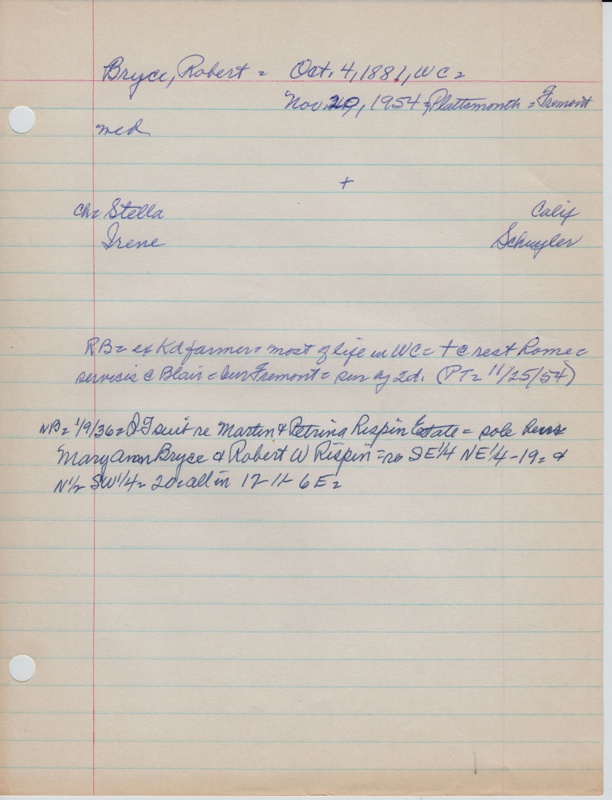 Bryce, Robert = Oct. 4, 1881, WC =
Nov. 20, 1954 = Plattsmouth = Fremont
med
+
ch = Stella Calif
Irene Schuyler
RB = ex Kd farmer = most of life in WC = + @ rest home =
services @ Blair = bur Fremont = sur by 2d. (PT = 11/25/54)
NB = 1/9/36 = QT suit re Martin & Petrina Rispin Estate = sole heirs
Mary Ann Bryce & Robert W Rispin = re SE 1/4 NE 1/4 - 19 = &
N 1/2 SW 1/4 = 20 = all in 17 - 11 - 6 E =